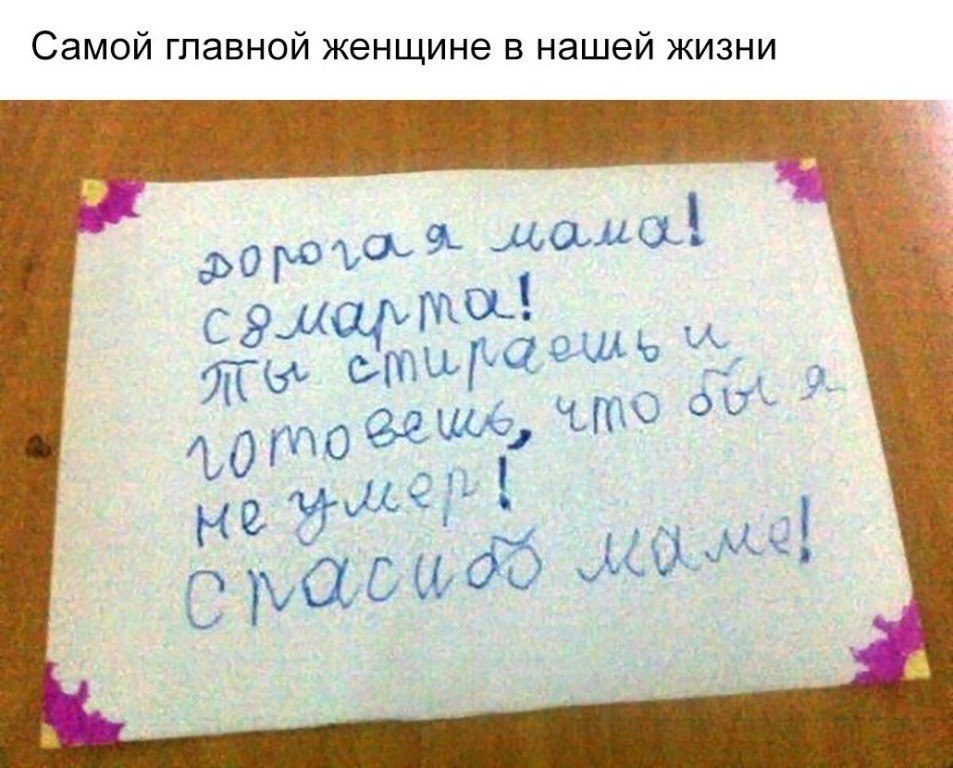 Самой главной женщине в нашей жизни
дорогая мама!
с 8 марта!
Ты стираешь и
готовешь, что бы я
не умер!
Спасибо маме!